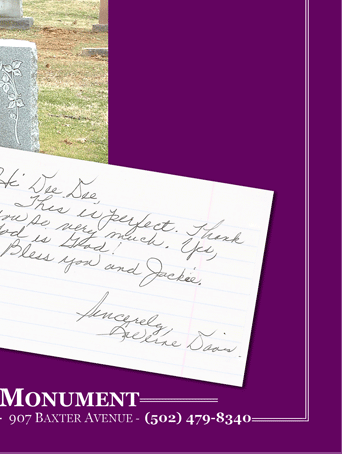 Hi Dee Dee,
This is perfect. Thank
you so very much. Yes,
God is Good!
Bless you and Jackie.
Sincerely,
LaVerne Davis.
MONUMENT
- 907 BAXTER AVENUE - (502) 479-8340